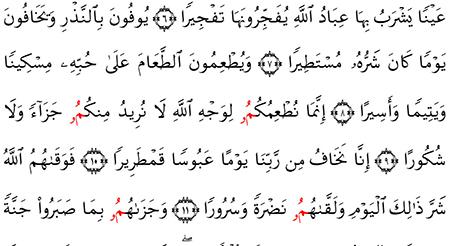 عَيْنًا يَشْرَبُ بِهَا عِبَادُ اللَّهِ يُفَجِّرُونَهَا تَفْجِيرًا ﴿٦﴾ يُوفُونَ بِالنَّذْرِ وَيَخَافُونَ
يَوْمًا كَانَ شَرُّهُۥ مُسْتَطِيرًا ﴿٧﴾ وَيُطْعِمُونَ الطَّعَامَ عَلَىٰ حُبِّهِۦ مِسْكِينًا
وَيَتِيمًا وَأَسِيرًا ﴿٨﴾ إِنَّمَا نُطْعِمُكُمُۥ لِوَجْهِ اللَّهِ لَا نُرِيدُ مِنكُمُۥ جَزَآءً وَلَا
شُكُورًا ﴿٩﴾ إِنَّا نَخَافُ مِن رَّبِّنَا يَوْمًا عَبُوسًا قَمْطَرِيرًا ﴿١٠﴾ فَوَقَىٰهُمُ اللَّهُ
شَرَّ ذَٰلِكَ الْيَوْمِ وَلَقَّىٰهُمُۥ نَضْرَةً وَسُرُورًا ﴿١١﴾ وَجَزَىٰهُمُۥ بِمَا صَبَرُوا۟ جَنَّةً